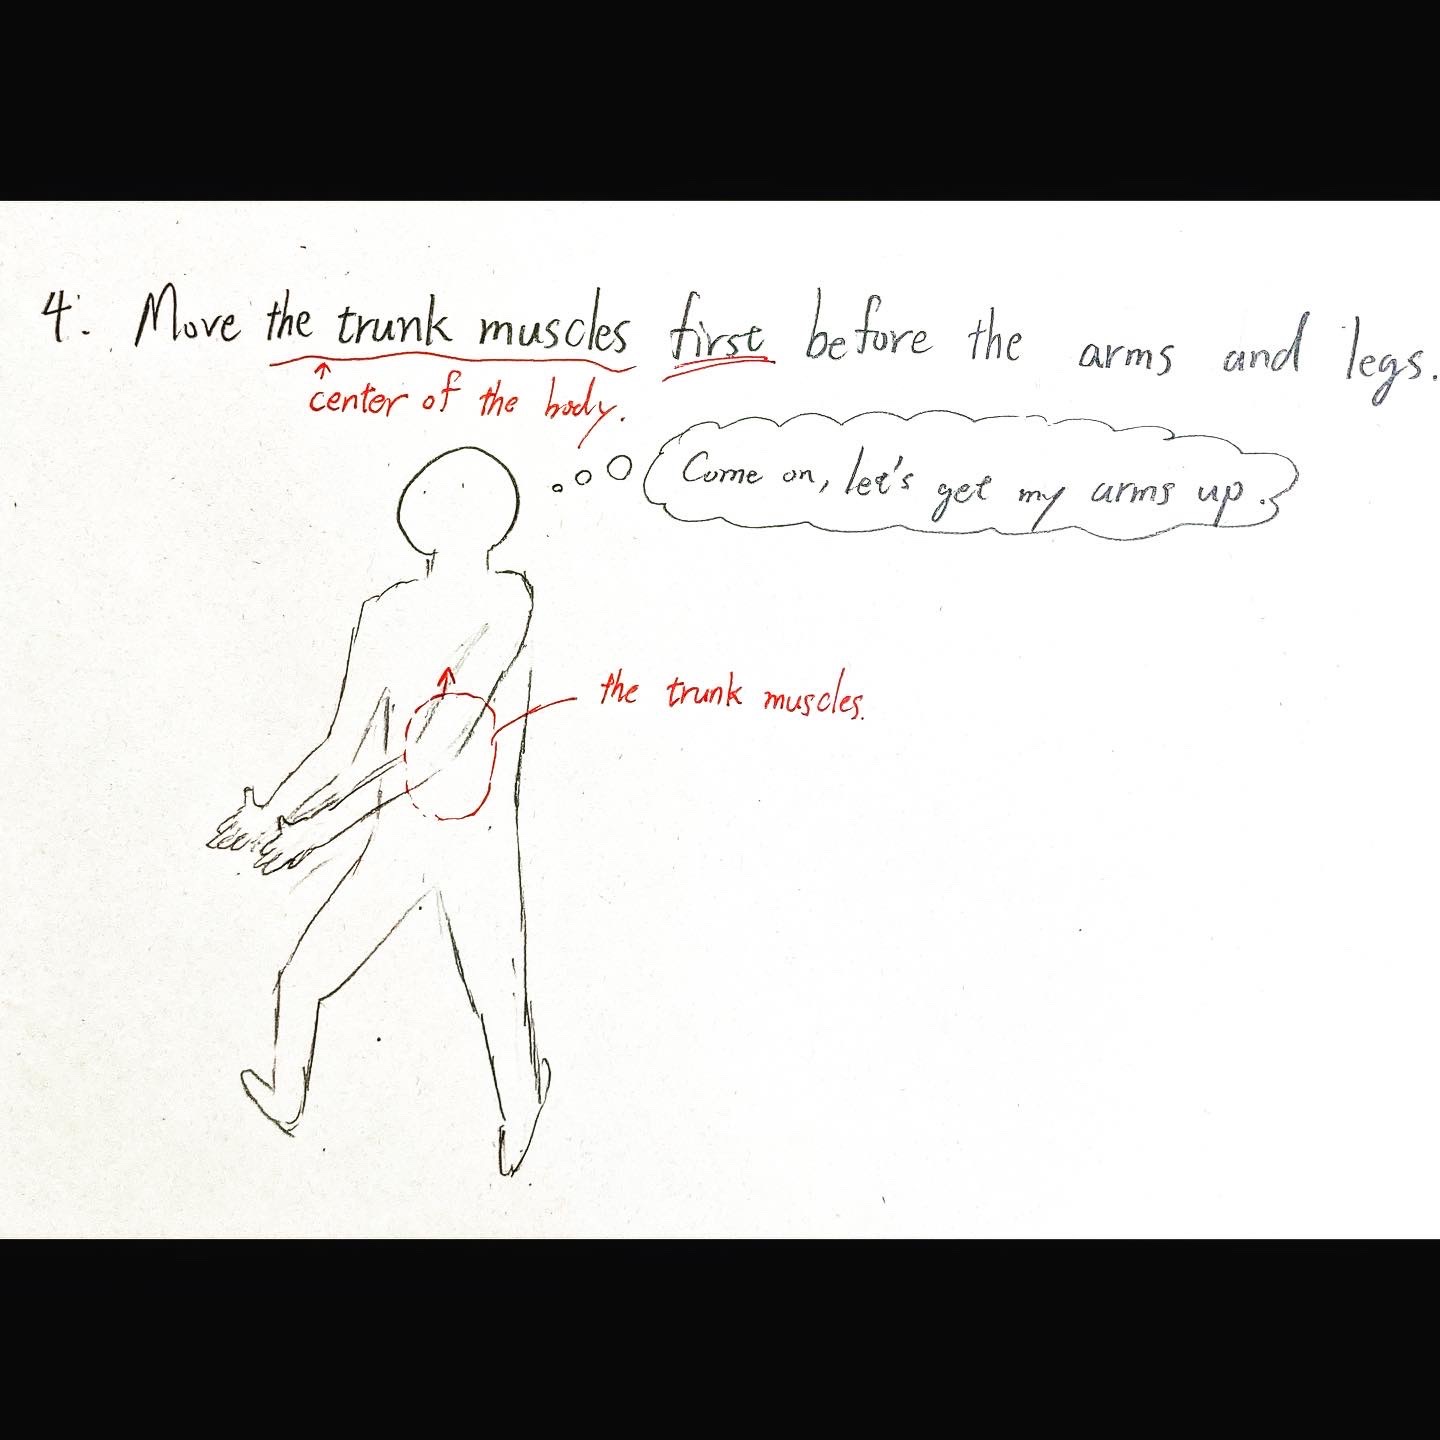 4. Move the trunk muscles first before the arms and legs.
↑
center of the body.
Come on, let's get my arms up.
the trunk muscles.